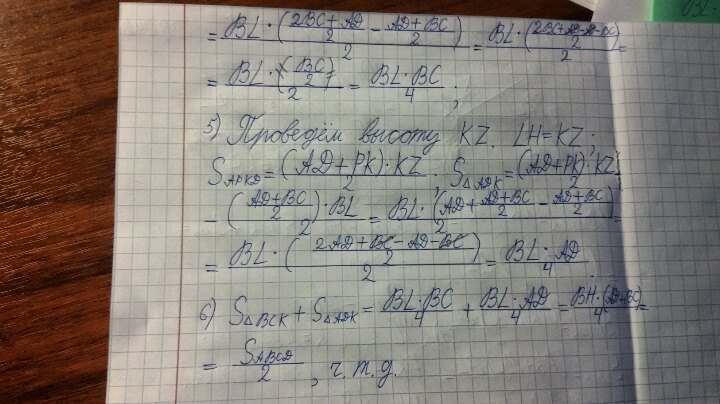 = BL·((2BC+AD)/2 − (AD+BC)/2)/2 = BL·((2BC+AD−AD−BC)/2)/2 =
= BL·(BC/2)/2 = BL·BC/4 ;
5) Проведём высоту KZ. LH=KZ;
S_APKD = (AD+PK)·KZ/2 . S_△ADK = (AD+PK)·KZ/2
− ((AD+BC)/2)·BL/2 = BL·(AD+(AD+BC)/2 − (AD+BC)/2)/2 =
= BL·((2AD+BC−AD−BC)/2)/2 = BL·AD/4 .
6) S_△BCK + S_△ADK = BL·BC/4 + BL·AD/4 = BH·(AD+BC)/4 =
= S_ABCD/2 , ч.т.д.